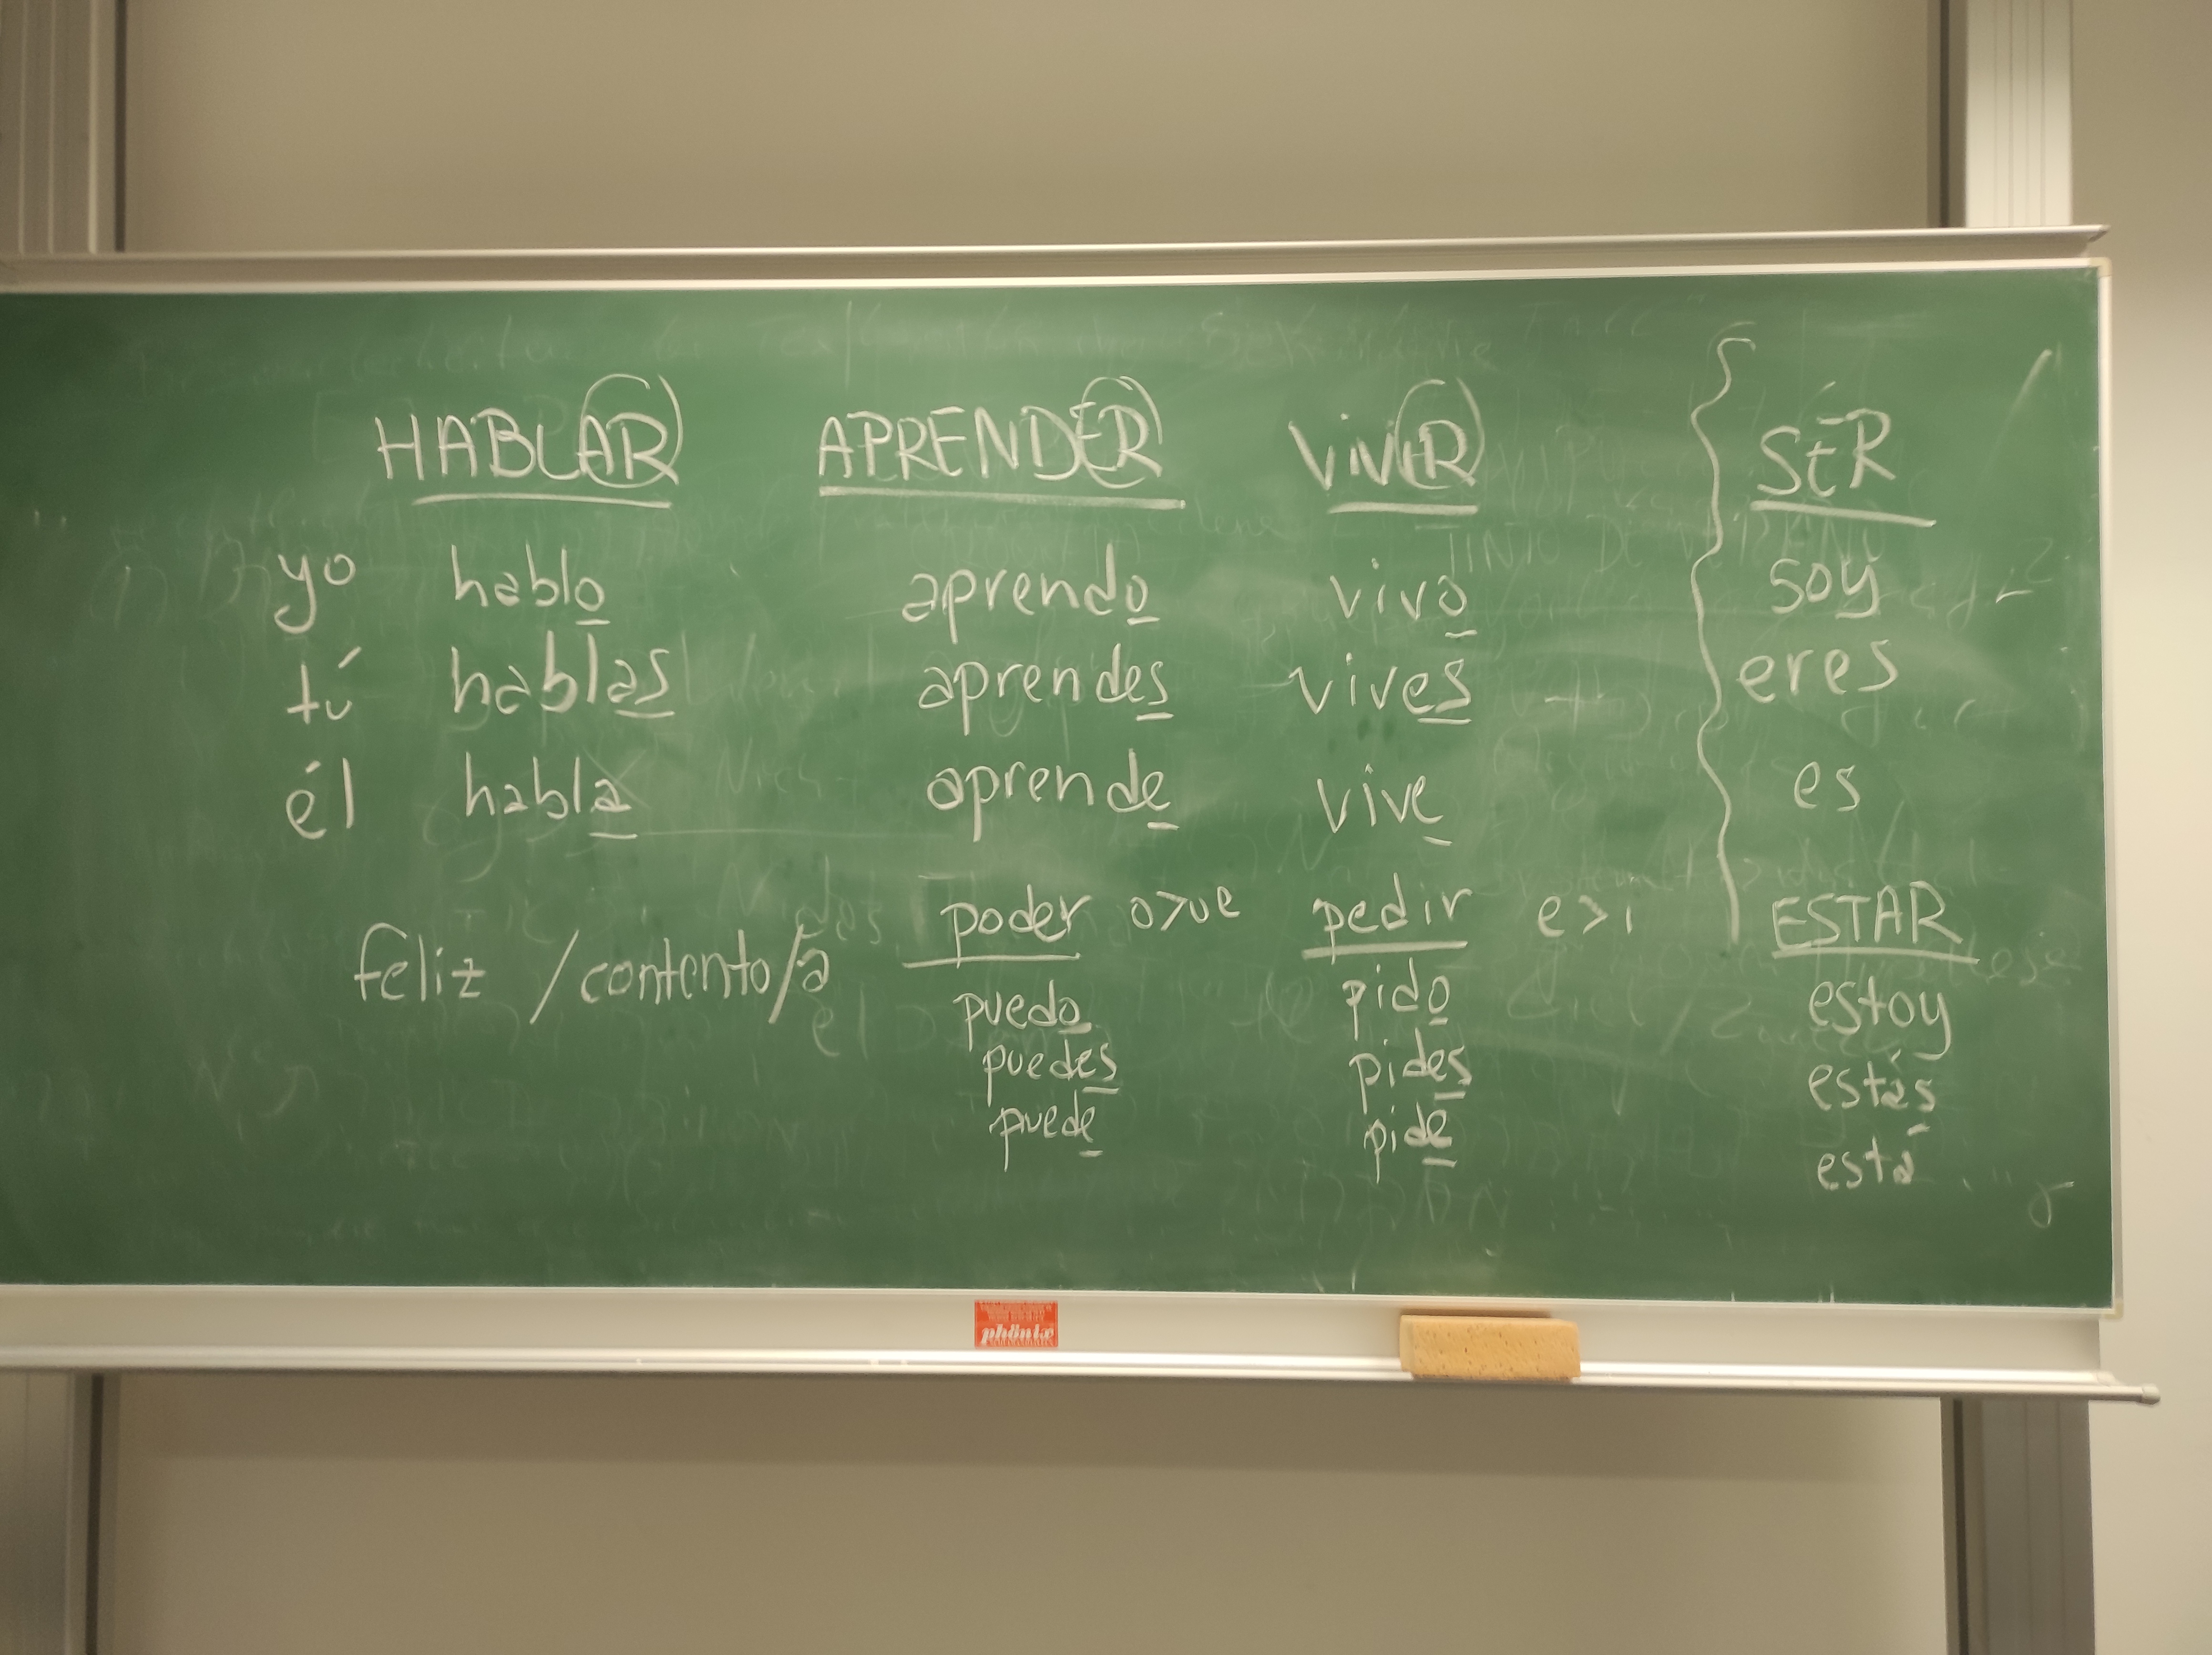 HABLAR APRENDER VIVIR SER
yo hablo aprendo vivo soy
tú hablas aprendes vives eres
él habla aprende vive es
poder o>ue pedir e>i ESTAR
feliz /contento/a
puedo pido estoy
puedes pides estás
puede pide está
phönix